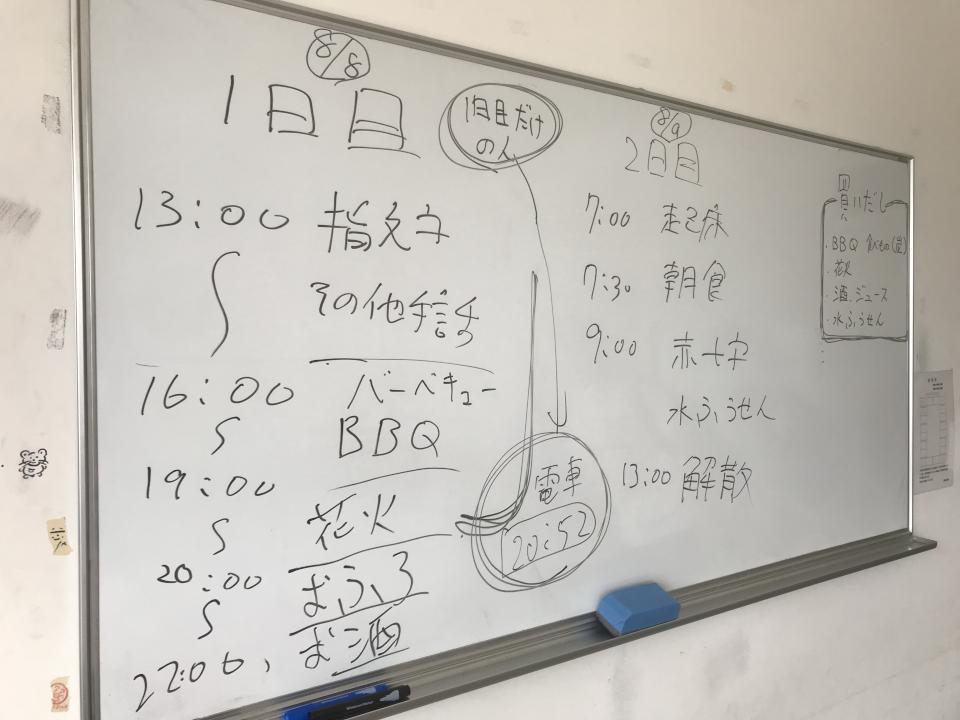 8/8
1日目
13:00 指文字
その他手話
16:00 バーベキュー
BBQ
19:00 花火
20:00 おふろ
22:00 お酒
1日目だけ
の人
電車
20:52
8/9
2日目
7:00 起床
7:30 朝食
9:00 赤十字
水ふうせん
13:00 解散
買いだし
・BBQ 食べもの(昼)
・花火
・酒、ジュース
・水ふうせん